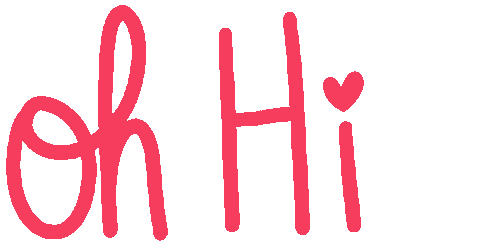 oh Hi